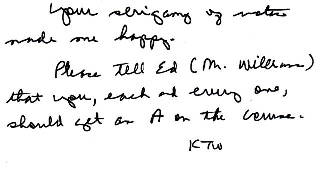 Your of notes
made me happy.
Please tell Ed (M. Williams)
that you, each and every one,
should get an A on the course.
KTW